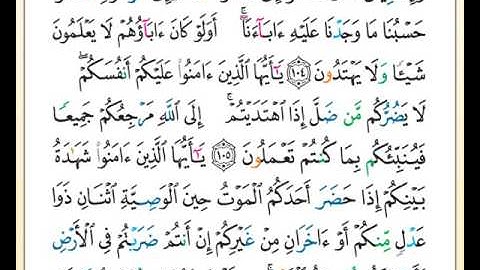 حَسْبُنَا مَا وَجَدْنَا عَلَيْهِ ءَابَآءَنَآۚ أَوَلَوْ كَانَ ءَابَآؤُهُمْ لَا يَعْلَمُونَ
شَيْـًٔا وَلَا يَهْتَدُونَ ١٠٤ يَـٰٓأَيُّهَا ٱلَّذِينَ ءَامَنُوا۟ عَلَيْكُمْ أَنفُسَكُمْۖ
لَا يَضُرُّكُم مَّن ضَلَّ إِذَا ٱهْتَدَيْتُمْۚ إِلَى ٱللَّهِ مَرْجِعُكُمْ جَمِيعًا
فَيُنَبِّئُكُم بِمَا كُنتُمْ تَعْمَلُونَ ١٠٥ يَـٰٓأَيُّهَا ٱلَّذِينَ ءَامَنُوا۟ شَهَـٰدَةُ
بَيْنِكُمْ إِذَا حَضَرَ أَحَدَكُمُ ٱلْمَوْتُ حِينَ ٱلْوَصِيَّةِ ٱثْنَانِ ذَوَا
عَدْلٍ مِّنكُمْ أَوْ ءَاخَرَانِ مِنْ غَيْرِكُمْ إِنْ أَنتُمْ ضَرَبْتُمْ فِى ٱلْأَرْضِ